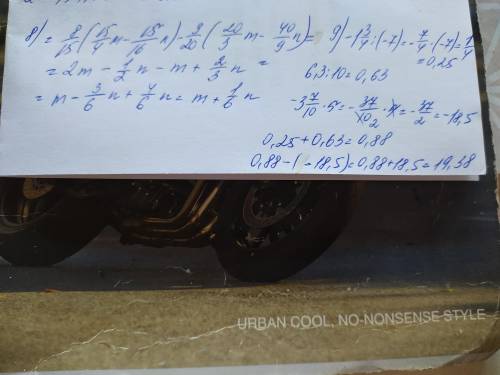 8) = 8/15 (15/4 m - 15/16 n) - 9/20 (20/9 m - 40/9 n) =
= 2m - 1/2 n - m + 2/3 n =
= m - 3/6 n + 4/6 n = m + 1/6 n
9) -1 3/4 : (-7) = -7/4 · (-7) = 1/4
= 0,25
6,3 : 10 = 0,63
-3 7/10 · 5 = -37/10 2 · 5 = -37/2 = -18,5
0,25 + 0,63 = 0,88
0,88 - (-18,5) = 0,88 + 18,5 = 19,38
URBAN COOL, NO-NONSENSE STYLE